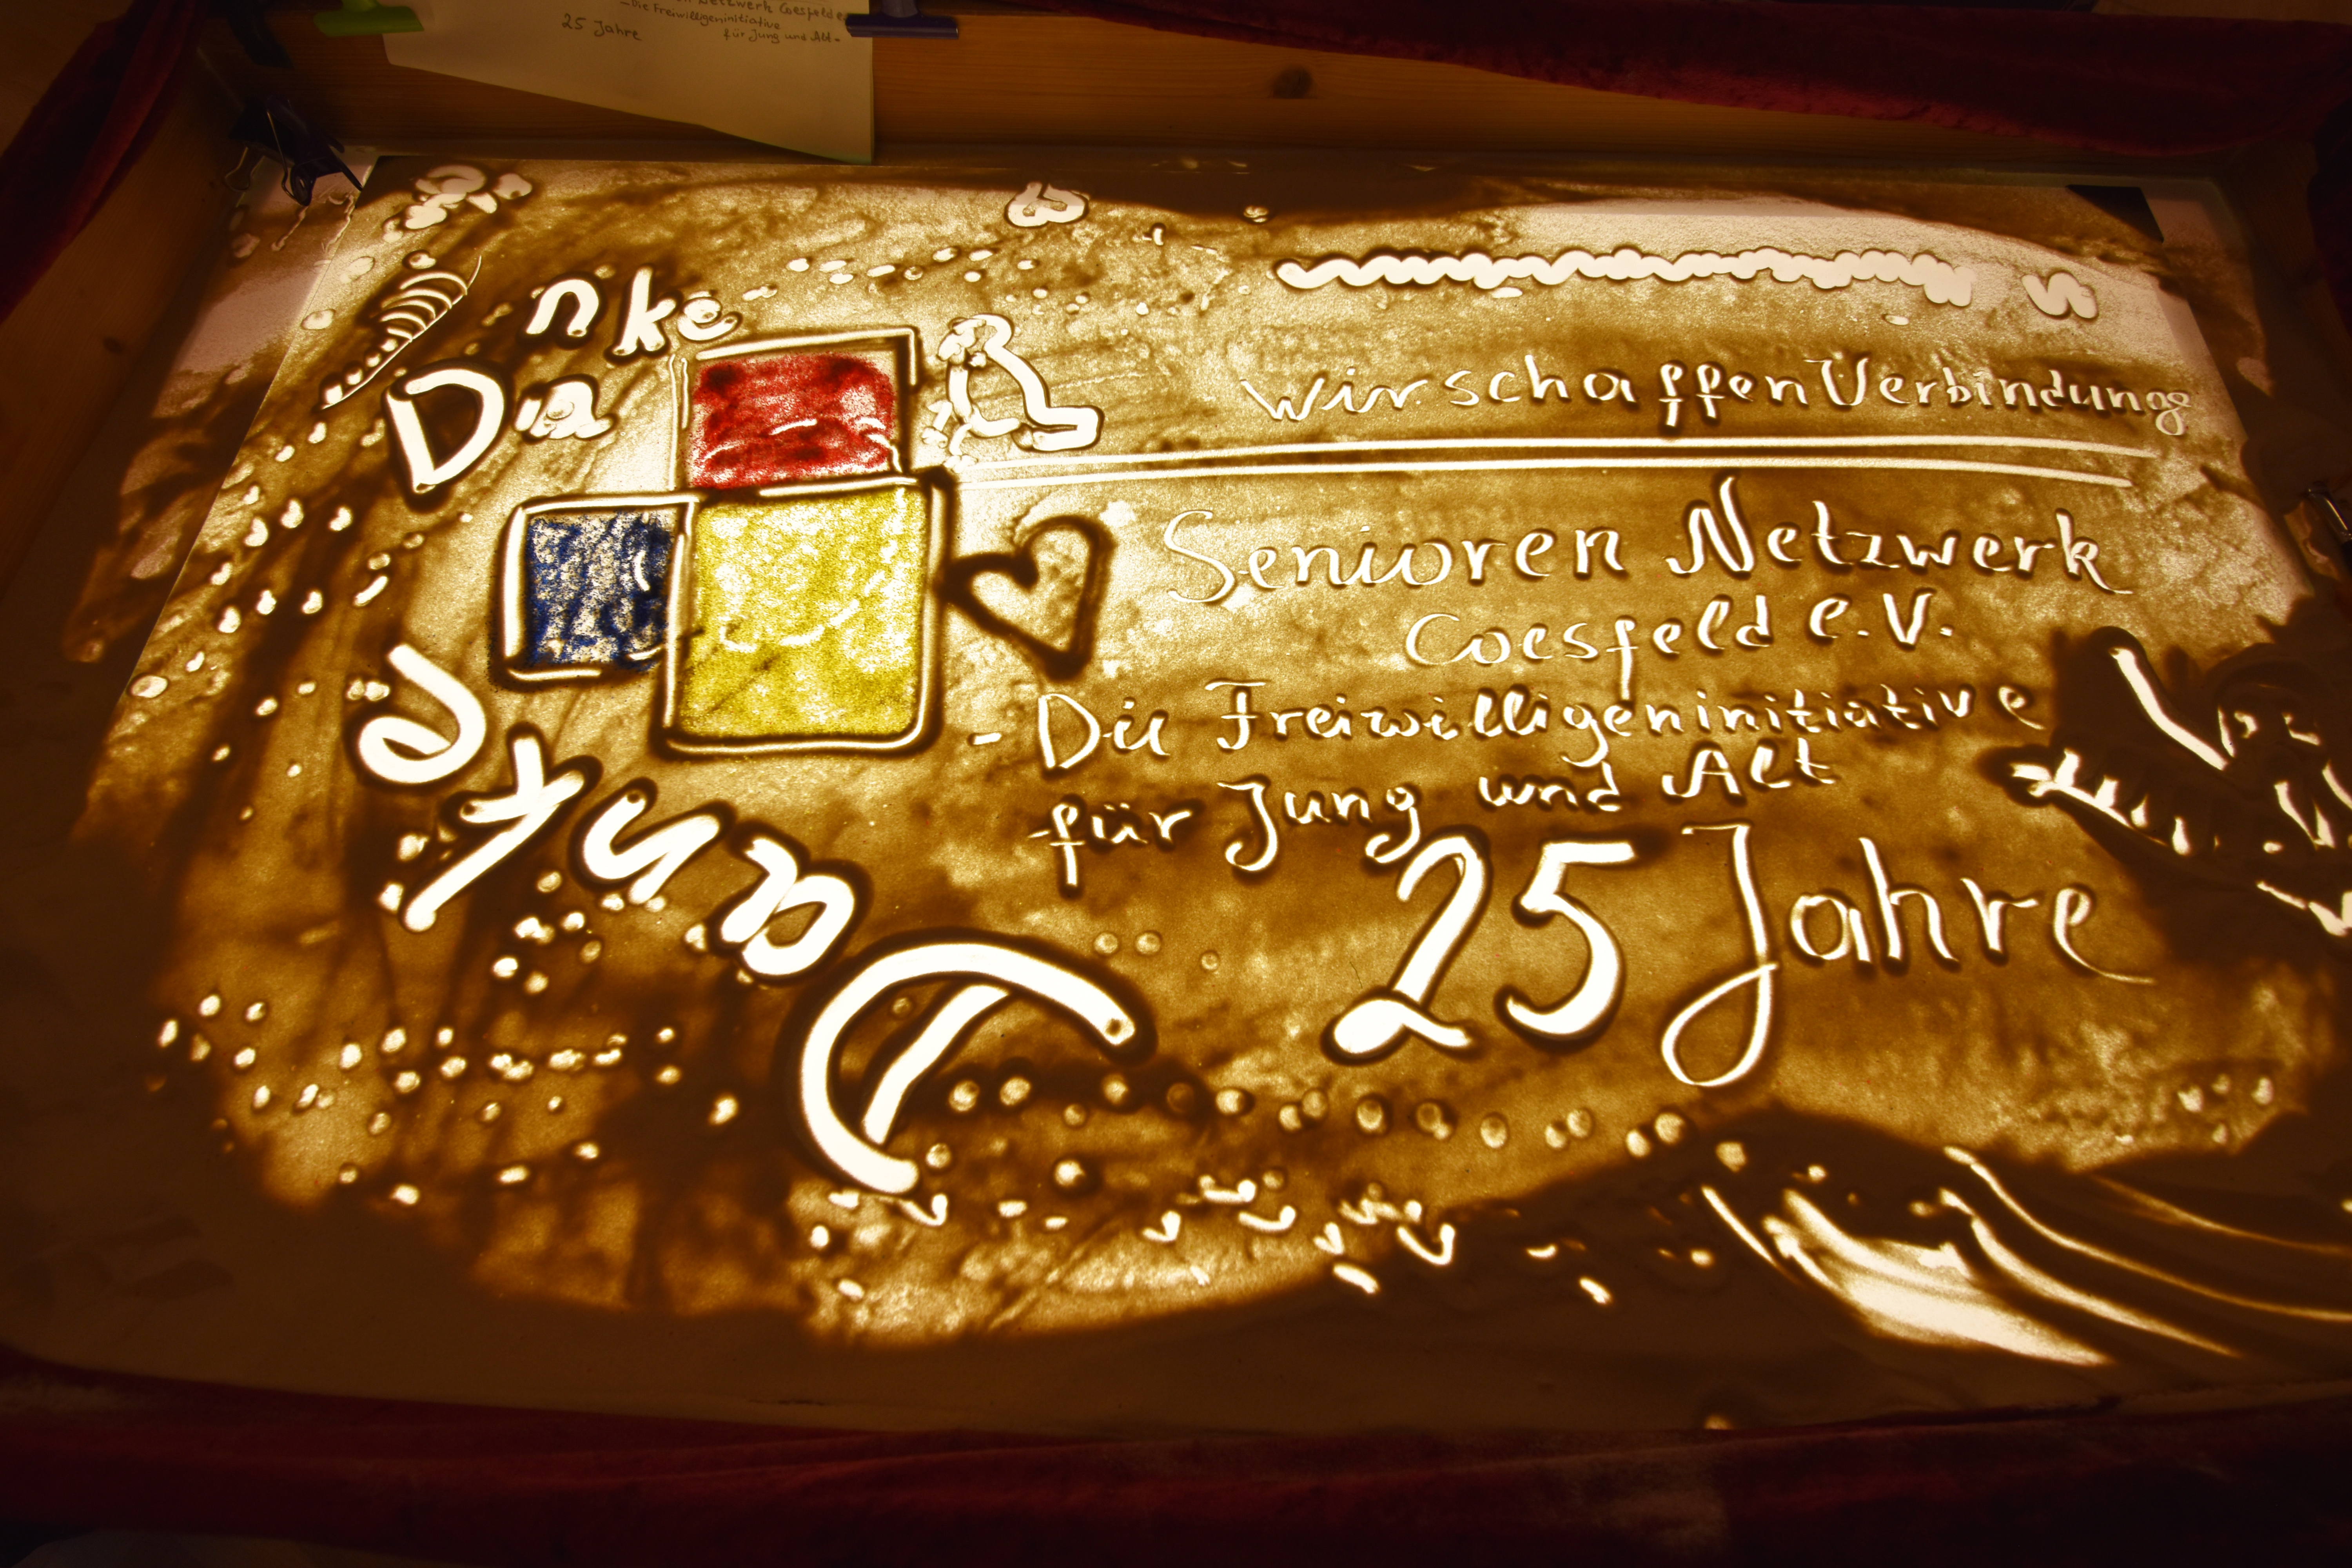 Netzwerk Coesfeld e.
-Die Freiwilligeninitiative
25 Jahre für Jung und Alt-
Danke
Wir schaffen Verbindung
Senioren Netzwerk
Coesfeld e.V.
- Die Freiwilligeninitiative
für Jung und Alt
25 Jahre
Danke